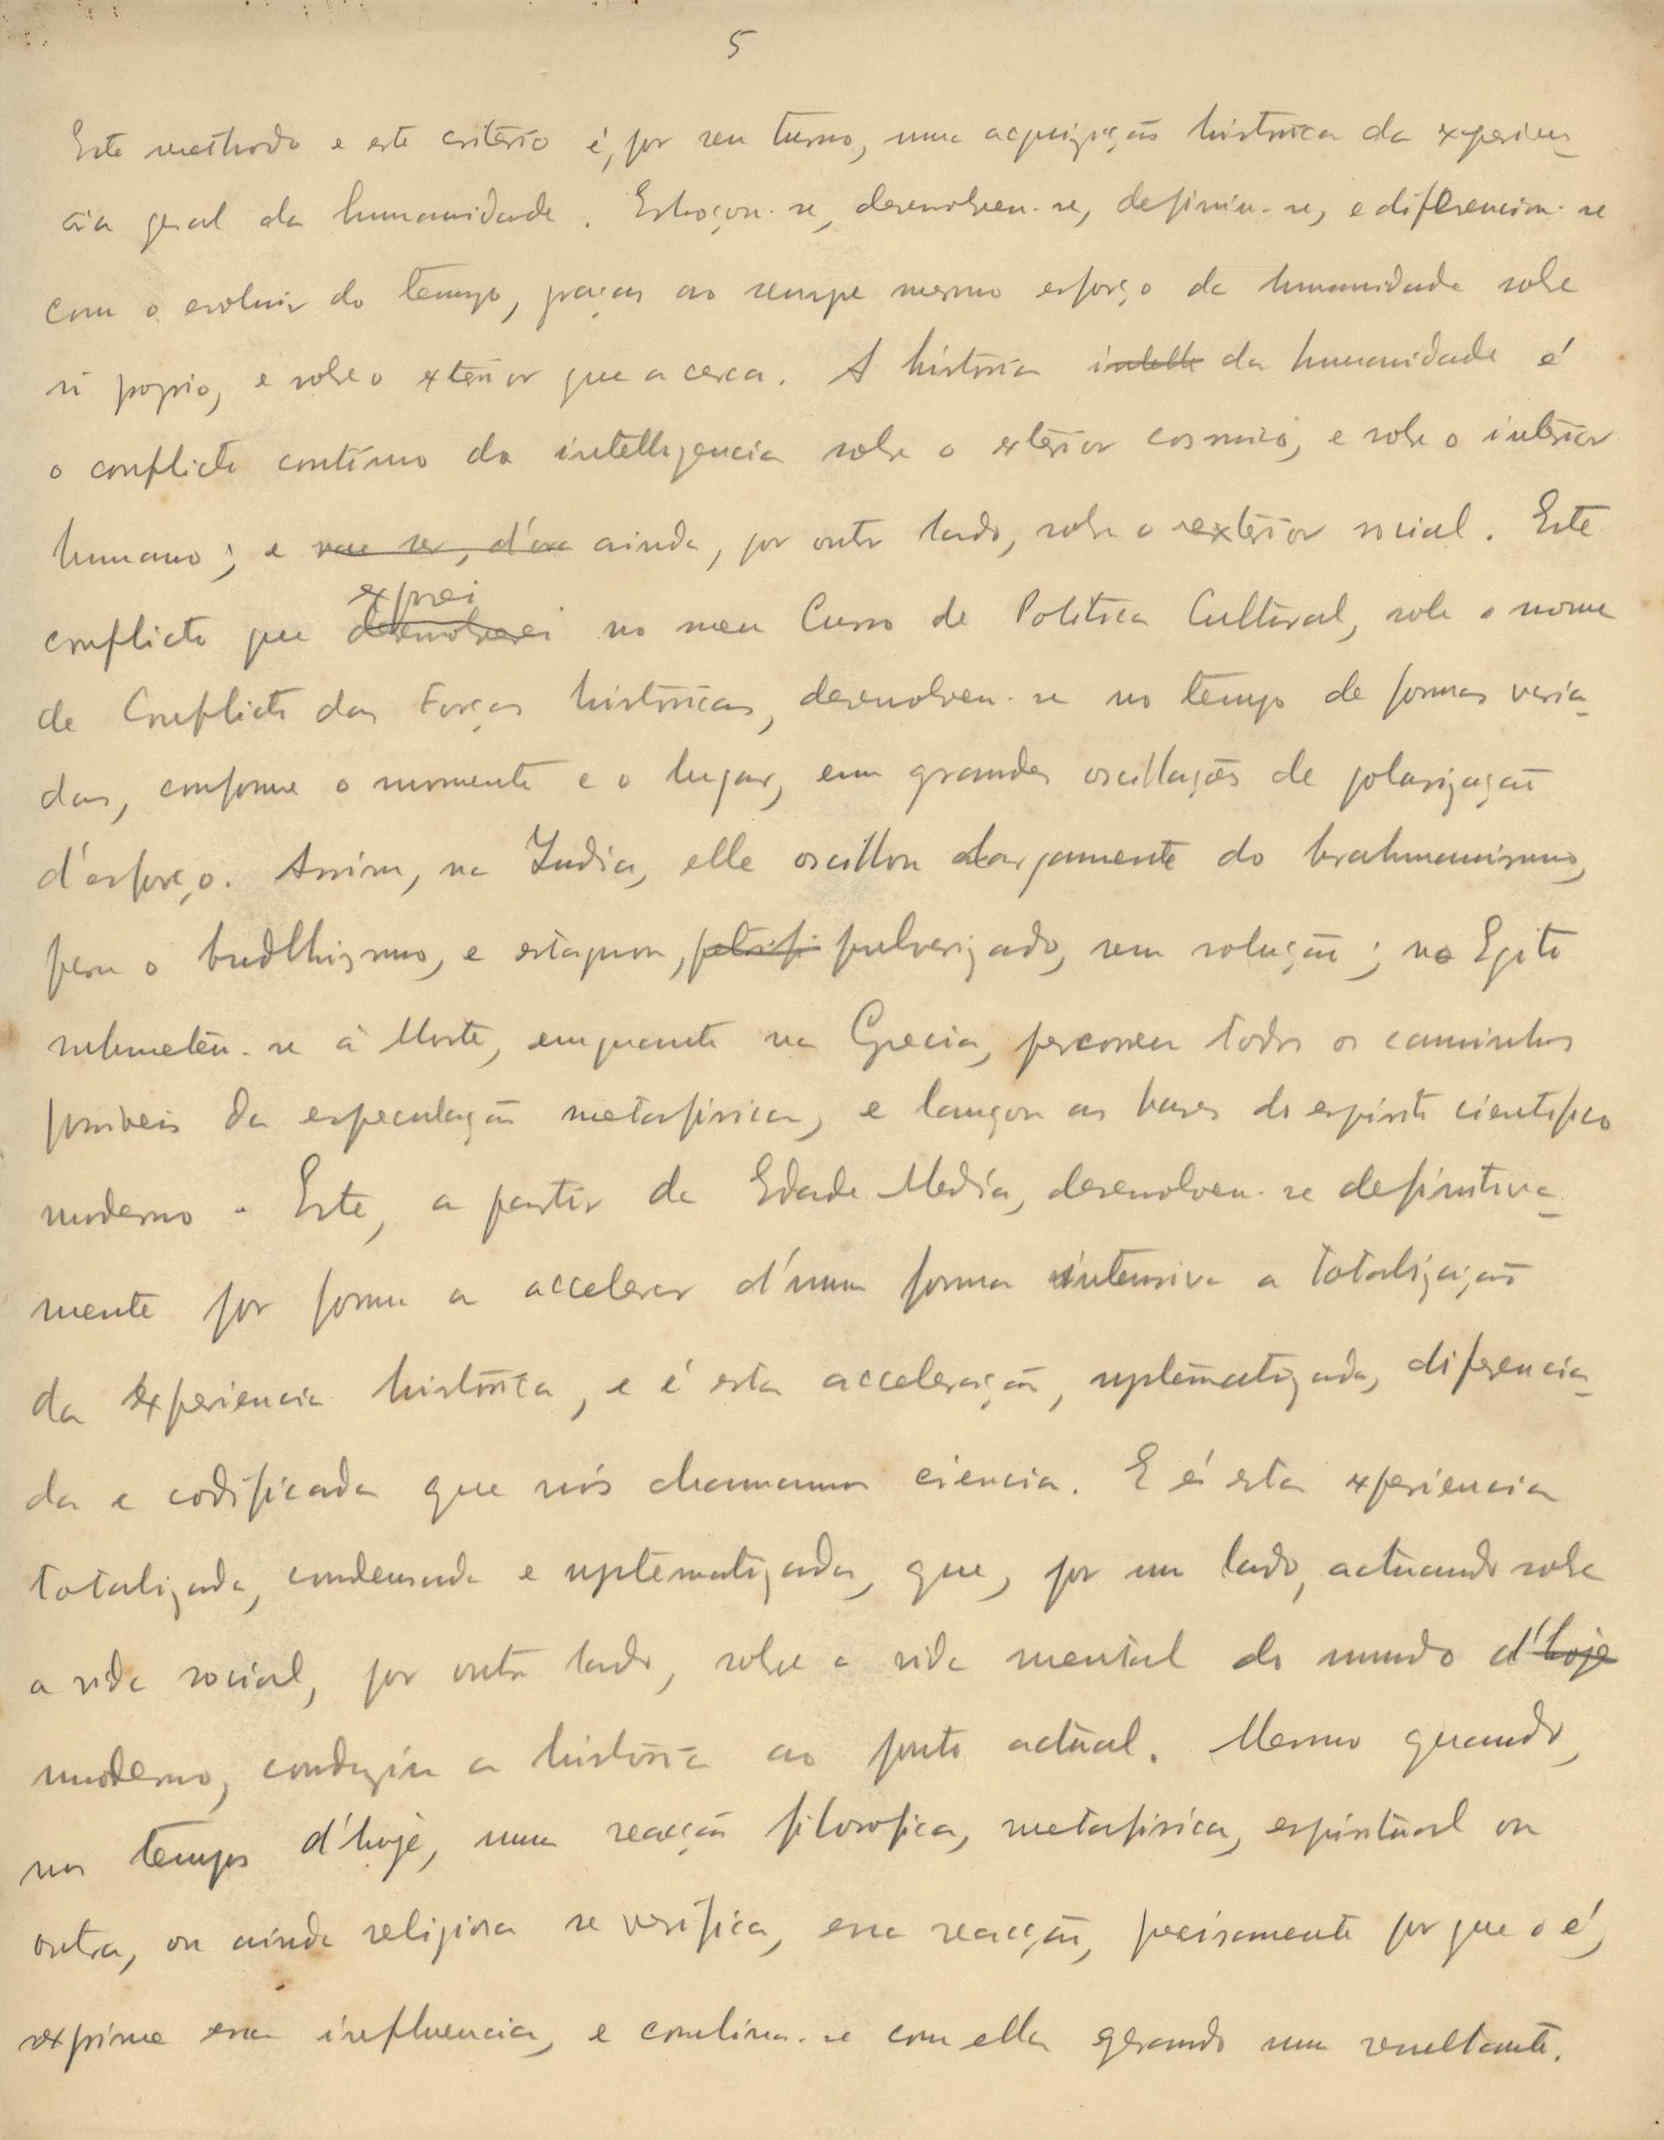 5
Este methodo e este critério é, por seu turno, uma acquizição historica da experien_
cia geral da humanidade. Esboçou-se, desenvolveu-se, definiu-se, e diferenciou-se
com o evoluir do tempo, graças ao sempre mesmo esforço da humanidade sobre
si propio, e sobre o exterior que a cerca. A história intelle da humanidade é
o conflicto contínuo da intelligencia sobre o exterior cosmico, e sobre o interior
humano; e ainda, por outro lado, sobre o exterior social. Este
expuz
conflicto que desenvolverei no meu Curso de Politica Cultural, sob o nome
de Conflicto das Forças históricas, desenvolveu-se no tempo de formas varia_
das, conforme o momento e o lugar, em grandes oscillações de polarização
d'esforço. Assim, na India, elle oscillou largamente do brahmanismo,
para o budhismo, e estagnou, petrifi pulverizado, sem solução; no Egito
submeteu-se à Morte, emquanto na Grecia, percorreu todos os caminhos
possiveis da especulação metafisica, e lançou as bases do espirito cientifico
moderno. Este, a partir da Edade Media, desenvolveu-se definitiva_
mente por forma a accelerar d'uma forma intensiva a totalização
da experiencia histórica, e é esta acceleração, systematizada, diferencia_
da e codificada que nós chamamos ciencia. E é esta experiencia
totalizada, condensada e systematizada, que, por um lado, actuando sobre
a vida social, por outro lado, sobre a vida mental do mundo d'hoje
moderno, conduziu a história ao ponto actual. Mesmo quando,
nos tempos d'hoje, uma reacção filosofica, metafisica, espiritual ou
outra, ou ainda religiosa se verifica, essa reacção, precisamente por que o é,
exprime essa influencia, e combina-se com ella gerando um resultante.